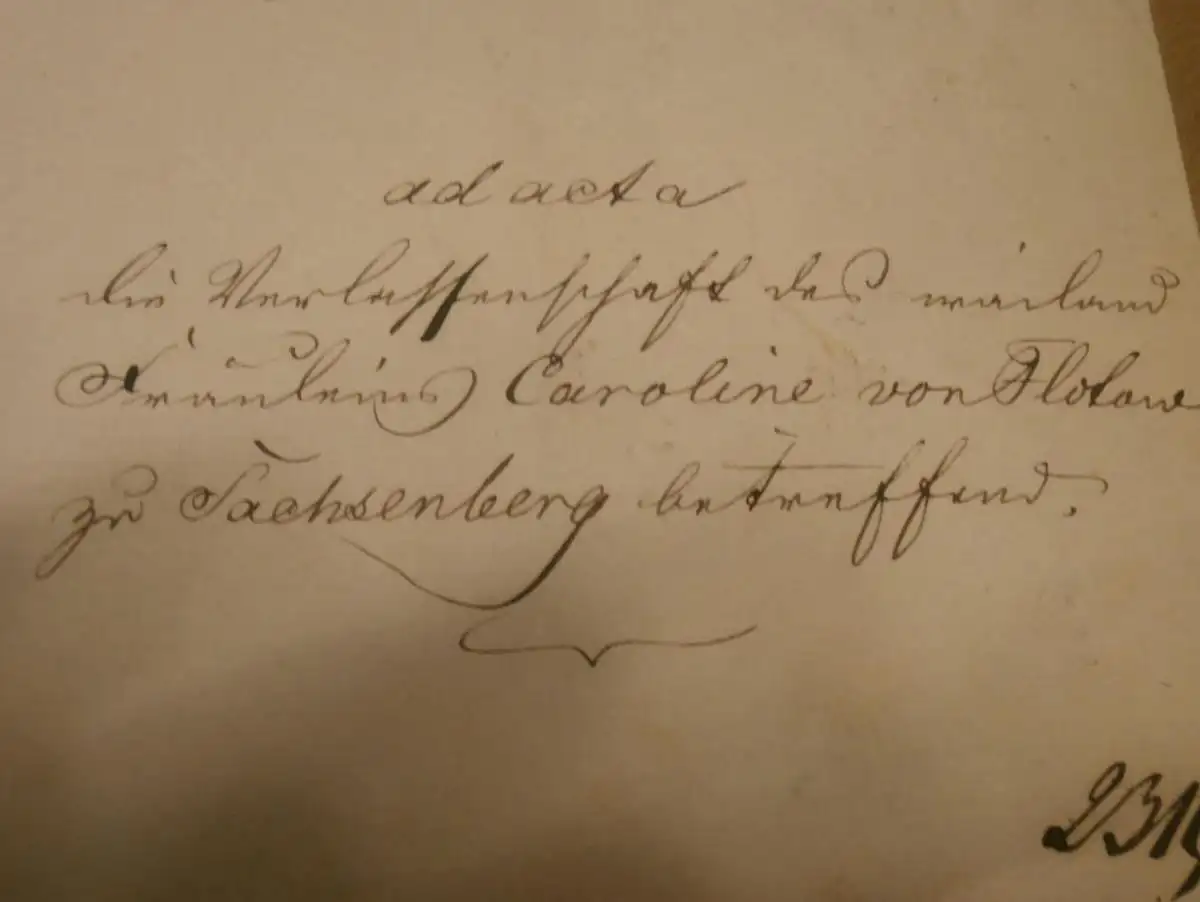 ad acta
die Verlassenschaft des weiland
Fräuleins Caroline von Flotow
zu Sachsenberg betreffend.